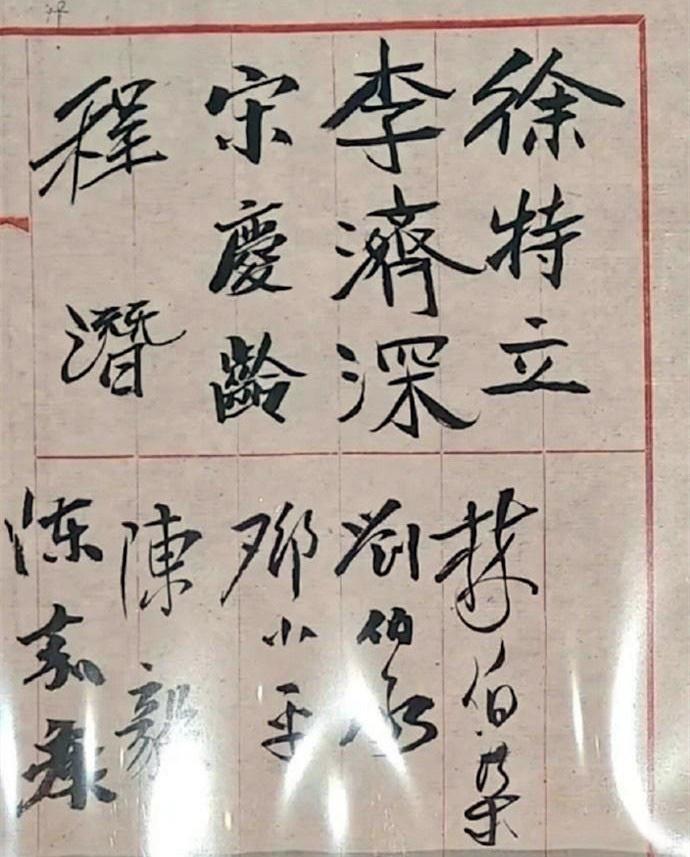 徐特立
李濟深
宋慶齡
程潛
林伯渠
劉伯承
鄧小平
陳毅
陳嘉庚